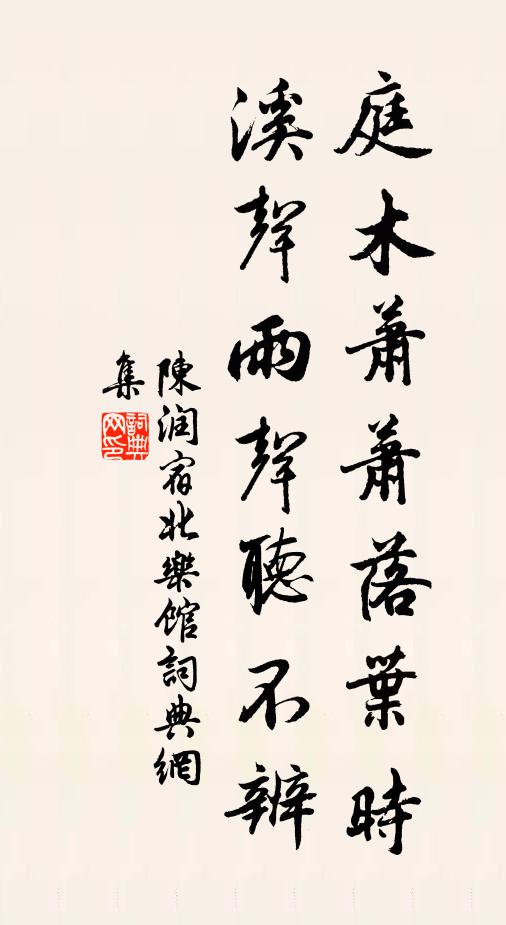 庭木蕭蕭落葉時
溪聲雨聲聽不辨
陳润宿北樂館詞典網
集
詞典
网印